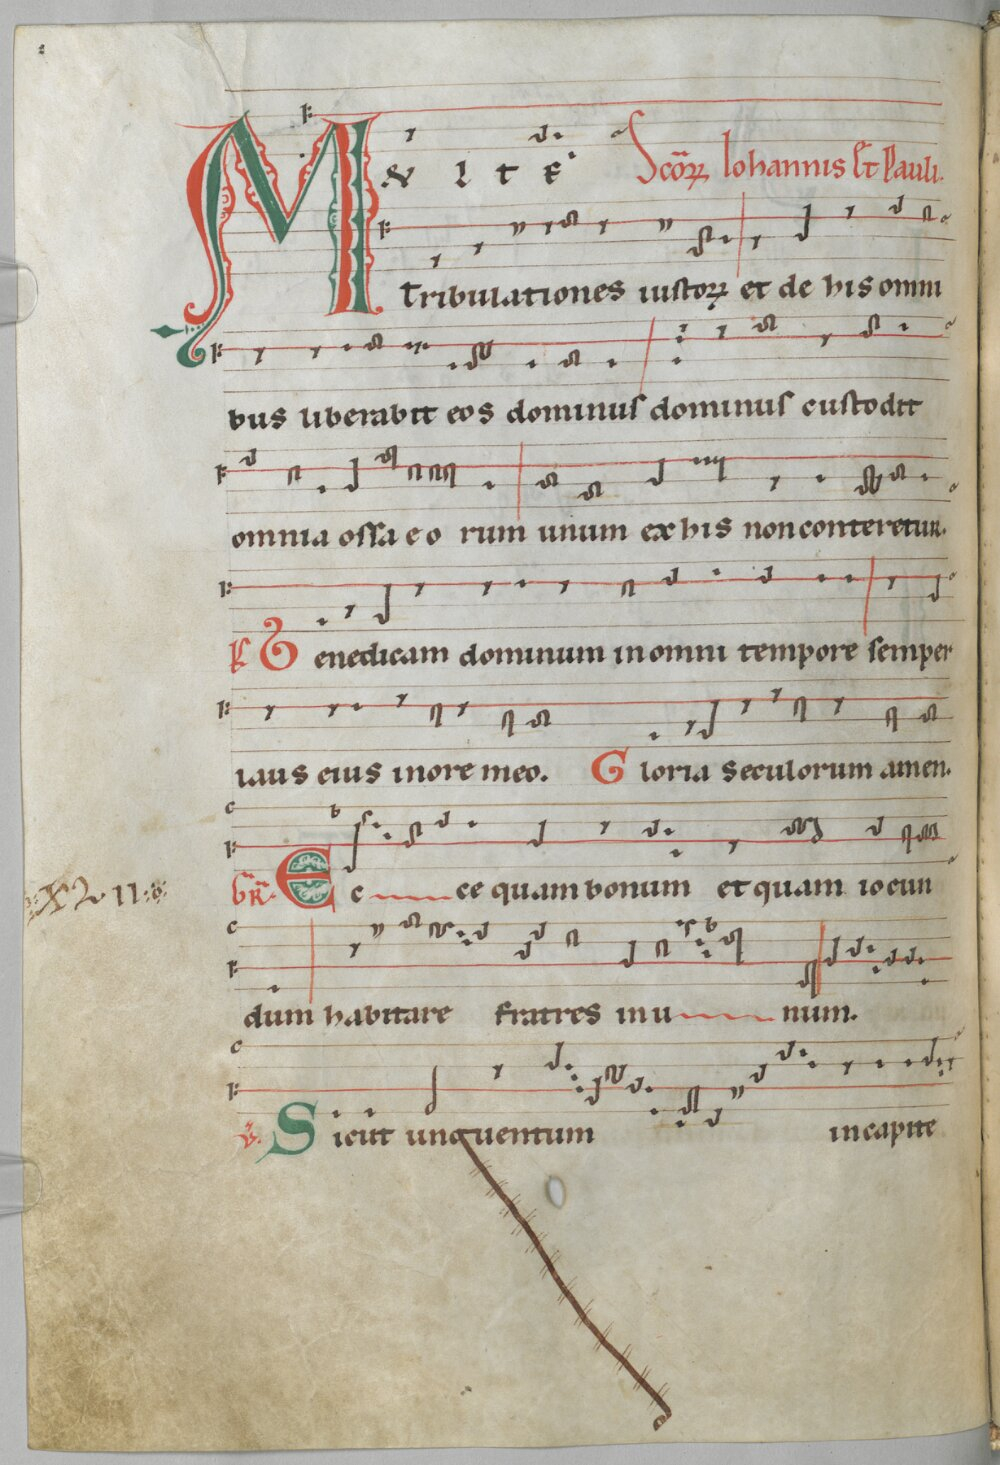 MVLTE Scōꝝ Iohannis Et Pauli.
tribulationes iustoꝝ et de his omni
bus liberabit eos dominus dominus custodit
omnia ossa eo rum unum ex his non conteretur.
Benedicam dominum in omni tempore semper
laus eius in ore meo. Gloria seculorum amen.
GR̄. Ec ce quam bonum et quam iocun
dum habitare fratres in u num.
V. Sicut unguentum in capite